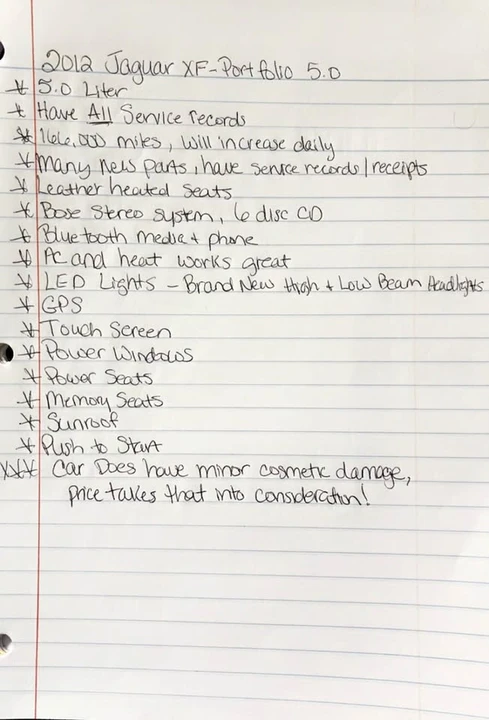 2012 Jaguar XF-Portfolio 5.0
* 5.0 Liter
* Have All Service records
* 166,000 miles, will increase daily
* Many new parts, have service records/receipts
* Leather heated seats
* Bose Stereo system, 6 disc CD
* Bluetooth media + phone
* AC and heat works great
* LED Lights - Brand New High + Low Beam Headlights
* GPS
* Touch Screen
* Power Windows
* Power Seats
* Memory Seats
* Sunroof
* Push to Start
*** Car Does have minor cosmetic damage,
price takes that into consideration!